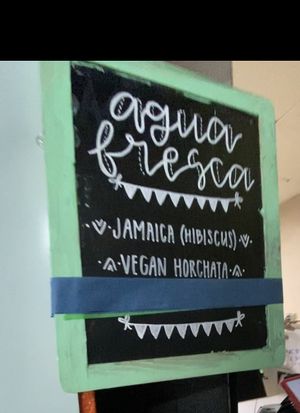 agua
fresca
JAMAICA (HIBISCUS)
VEGAN HORCHATA